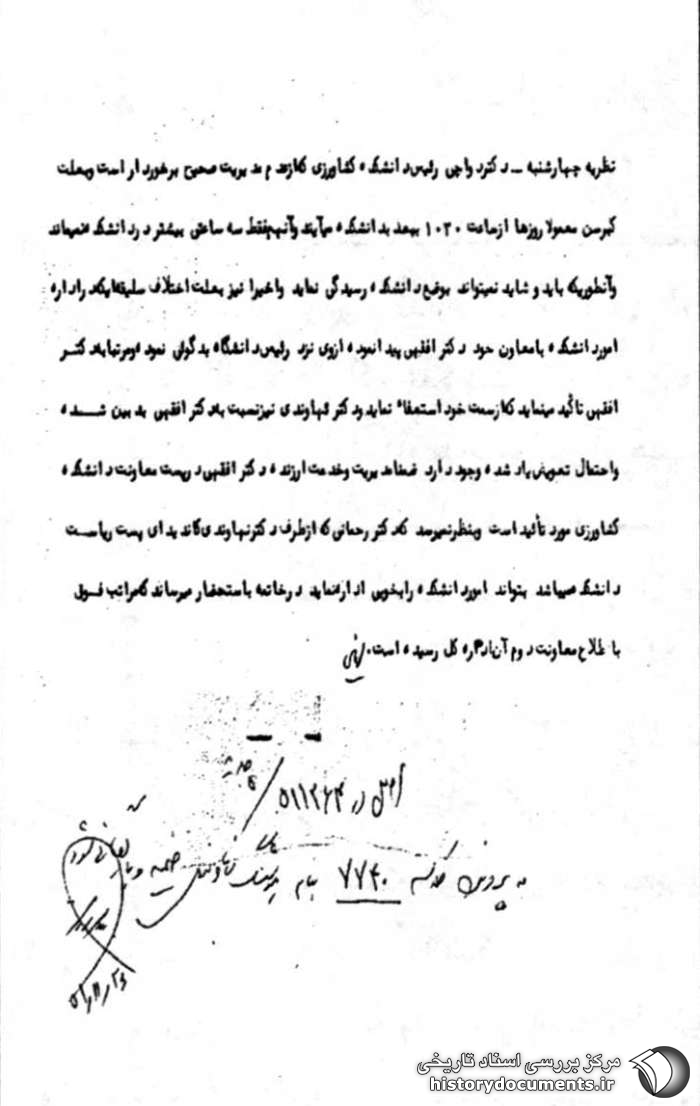 نظریه چهارشنبه ــ دکتر واچی رئیس دانشکده کشاورزی که از عدم مدیریت صحیح برخوردار است وبعلت
کبرسن معمولا روزها ازساعت ۱۰۳۰ ببعد بدانشکده میآیند وآنهم فقط سه ساعتی بیشتر در دانشکده نمیماند
وآنطوریکه باید و شاید نمیتواند بوضع دانشکده رسیدگی نماید واخیرا نیز بعلت اختلاف سلیقه ایکه در اداره
امور دانشکده بامعاون خود دکتر افقهی پیدا نموده ازوی نزد رئیس دانشگاه بدگوئی نموده ومرتبا به دکتـر
افقهی تأکید مینماید که ازسمت خود استعفاء نماید و دکتر نهاوندی نیز نسبت به دکتر افقهی بدبین شـــده
واحتمال تعویض یاد شده وجود دارد ضمنا مدیریت وخدمت ارزنده دکتر افقهی در پست معاونت دانشکده
کشاورزی مورد تأئید است وبنظر نمیرسد که دکتر رحمانی که ازطرف دکتر نهاوندی کاندیدای پست ریاست
دانشکده میباشد بتواند امور دانشکده رابخوبی اداره نماید درخاتمه باستحضار میرساند که مراتب فـوق
باطلاع معاونت دوم آن اداره کل رسیده است.
اصل در ۵۱۱۲۶۴
به پرونده کلاسه ۷۷۴۰ بنام هوشنگ نهاوندی ضمیمه و بایگانی شود
مرکز بررسی اسناد تاریخی
historydocuments.ir